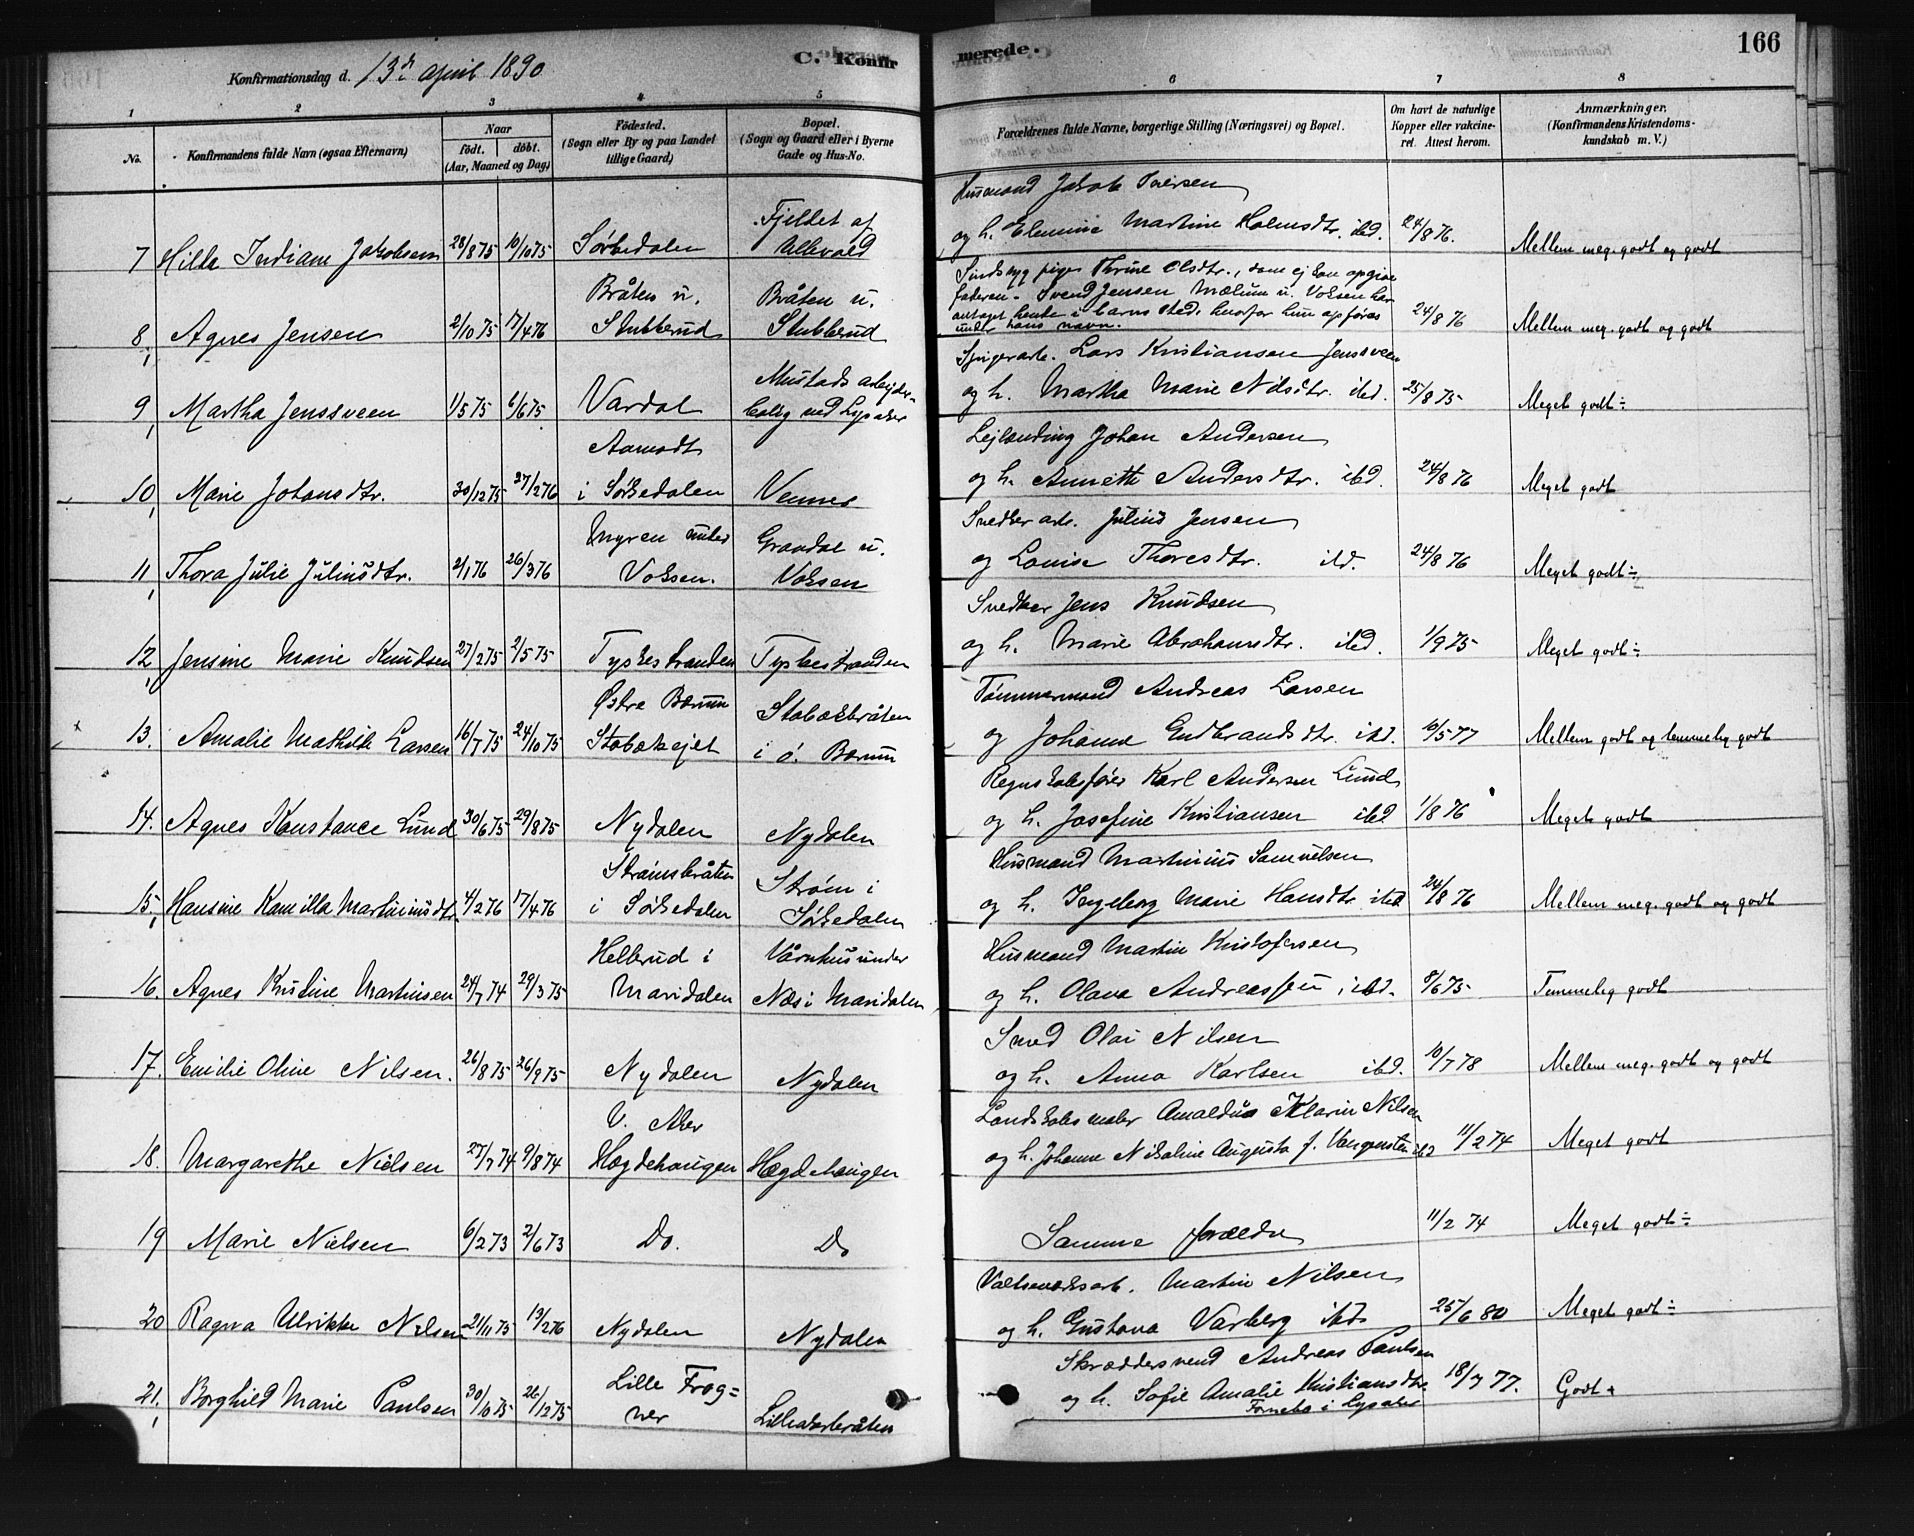 Konfirmationsdag d. 13de april 1890
C. Konfir
merede.
166
1 2 3 4 5 6 7 8
No.
Konfirmandens fulde Navn (ogsaa Efternavn)
Naar
født. døbt.
(Aar, Maaned og Dag)
Fødested.
(Sogn eller By og paa Landet
tillige Gaard)
Bopæl.
(Sogn og Gaard eller i Byerne
Gade og Hus-No.
Forældrenes fulde Navne, borgerlige Stilling (Næringsvei) og Bopæl.
Om havt de naturlige
Kopper eller vakcine-
ret. Attest herom.
Anmærkninger.
(Konfirmandens Kristendoms-
kundskab m. V.)
Fjeldet af Husmand Jakob Iversen
7 Hilda Indiane Jakobsen 28/8 75 10/10 75 Sørkedalen Ullevold og h. Elemine Martine Holmsdtr. ibd. 24/8 76. Mellem meg. godt og godt
Bråten u. Bråten u. Sindssyg pige Thrine Olsdtr., som ej kan opgive
faderen. Svend Jensen Mælum u. Voksen har
antaget hende i barns sted, hvorfor hun opføres
8, Agnes Jensen 2/10 75 17/4 76 Stubberud Stubberud under hans navn. 24/8 76 Mellem meg. godt og godt
Mustads arbejder- Spigerarb. Lars Kristiansen Jenssveen
9, Martha Jenssveen 1/5 75 6/6 75 Vardal bolig ved Lysaker og h. Martha Marie Nilsdtr. ibd. 25/8 75 Meget godt ÷
Aamodt Lejlending Johan Andersen
10, Marie Johansdtr. 30/12 75 27/2 76 i Sørkedalen Vennes og h. Annette Andersdtr. ibd. 24/8 76 Meget godt
Myren under Grandal u. Snedker arb. Julius Jensen
11, Thora Julie Juliusdtr. 2/1 76 26/3 76 Voksen. Voksen og Lovise Thoresdtr. ibd. 24/8 76 Meget godt ÷
Snedker Jens Knudsen
12, Jensine Marie Knudsen 27/2 75 2/5 75 Tyskestranden Tyskestranden og h. Marie Abrahamsdtr. ibd. 1/9 75 Meget godt ÷
Østre Bærum Stabækbråten Tømmermand Andreas Larsen
13. Amalie Mathilde Larsen 16/7 75 24/10 75 Stabækejet i ø. Bærum og Johanne Gudbrandsdtr. ibd. 10/5 77 Mellem godt og temmelig godt
Regnskabsfører Karl Andersen Lund
14. Agnes Konstance Lund 30/6 75 29/8 75 Nydalen Nydalen og h. Josefine Kristiansen ibd 1/8 76 Meget godt
Strømsbråten Strøm i Husmand Martinius Samuelsen
15, Hansine Kamilla Martiniusdtr. 4/2 76 17/4 76 i Sørkedalen Sørkedalen og h. Ingeborg Marie Hansdtr. ibd 24/8 76 Mellem meg. godt og godt
Hellerud i Vårnhus under Husmand Martin Kristofersen
16. Agnes Kristine Martinsen 24/7 74 29/3 75 Maridalen Næs i Maridalen og h. Olava Andreassen ibd. 8/6 75 Temmelig godt
Smed Olai Nilsen
17. Emilie Oline Nilsen. 26/8 75 26/9 75 Nydalen Nydalen og h. Anna Karlsen ibd. 10/7 78 Mellem meg. godt og godt
V. Aker Landskabsmaler Amaldus Klarin Nilsen
18. Margarethe Nielsen 27/7 74 9/8 74 Hægdehaugen Hægdehaugen og h. Johanne Nikoline Augusta f. Vangensten ibd 11/2 74 Meget godt
19 Marie Nielsen 6/2 73 2/6 73 Do. Do Samme forældre 11/2 74 Meget godt ÷
Valseværksarb. Martin Nilsen
20 Ragna Ulrikke Nilsen 21/11 75 13/2 76 Nydalen Nydalen og h. Gustava Varberg ibd 25/6 80 Meget godt ÷
Lille Frog= Skræddersvend Andreas Paulsen
21, Borghild Marie Paulsen 30/10 75 26/12 75 ner Lilleakerbråten og h. Sofie Amalie Kristiansdtr. 18/7 77. Godt +
Fornebo i Lysaker